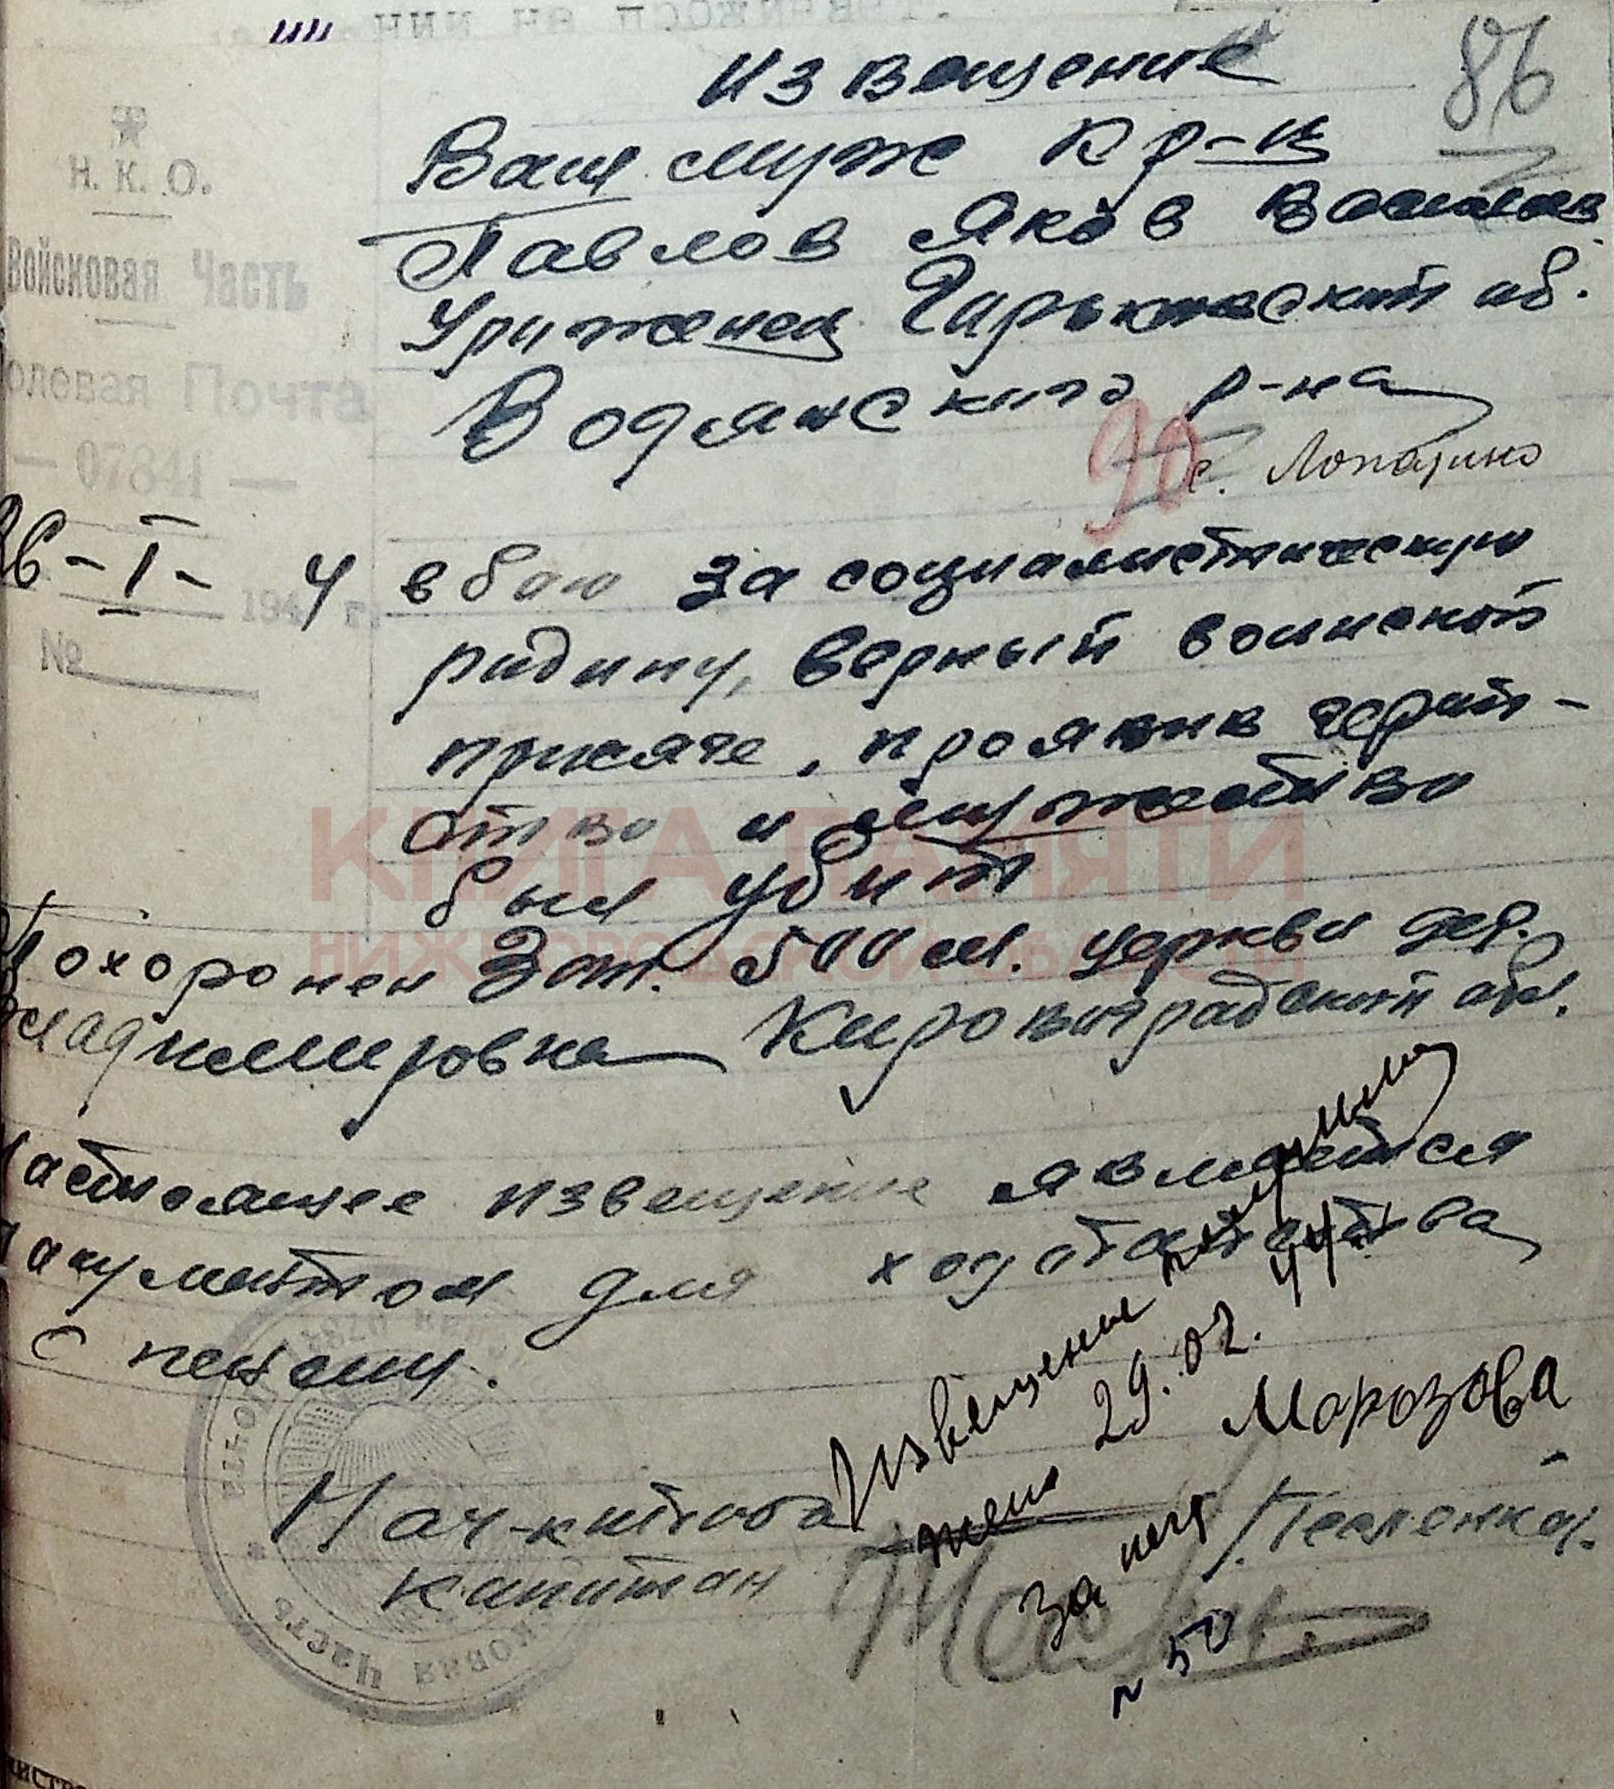 86
Извещение
Н. К. О.
Ваш муж кр-ц
Павлов Яков Васильев
Войсковая Часть
Уроженец Горьковской об.
Полевая Почта
Водянского р-на
90
с. Лопатино
— 07841 —
26-I- 1944 г.
№
в бою за социалистическую
родину, верный воинской
присяге, проявив герой-
ство и мужество
был убит
КНИГА ПАМЯТИ
НИЖЕГОРОДСКОЙ ОБЛАСТИ
Похоронен Зап. 500 м. церкви дер.
Владимировка Кировоградской обл.
Настоящее извещение является
документом для ходатайства
о пенсии.
Нач-к штаба
капитан
Извещение получила
жена 29.02.44г.
Морозова
за нач
№ 50
Часть